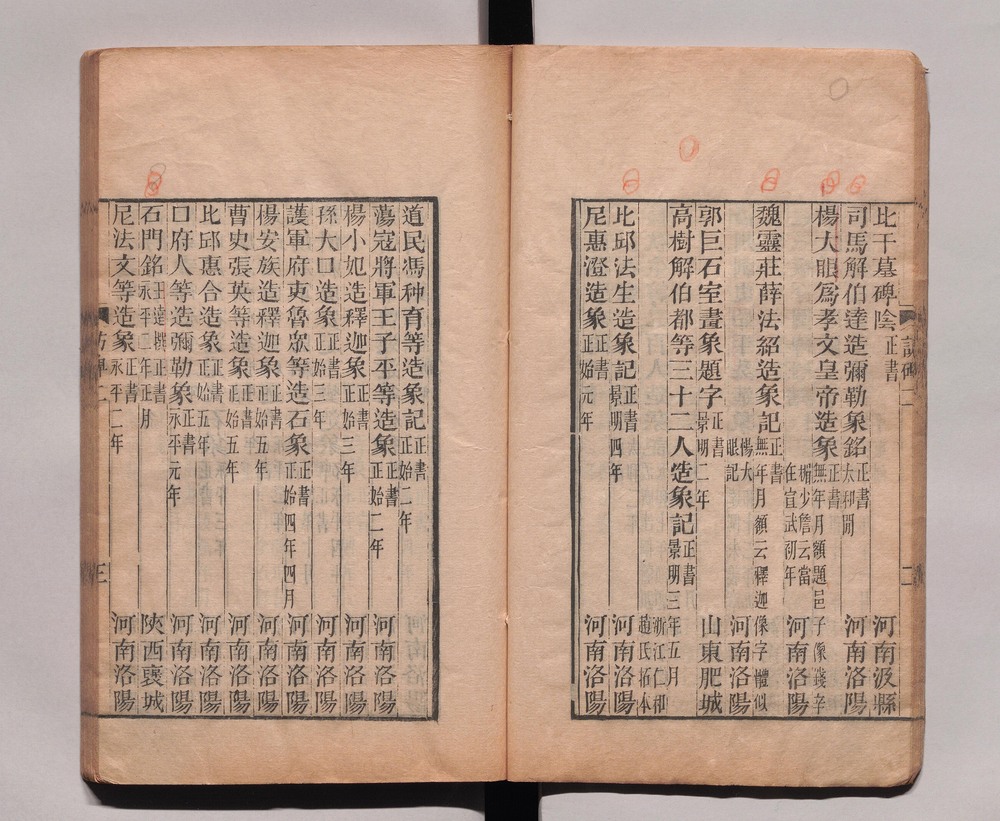 比干墓碑陰正書 河南汲縣
司馬解伯達造彌勒象銘正書太和閒 河南洛陽
楊大眼爲孝文皇帝造象正書無年月額題邑子像錢辛楣少詹云當在宣武初年 河南洛陽
魏靈莊薛法紹造象記正書無年月額云釋迦像字體似楊大眼記 河南洛陽
郭巨石室畫象題字正書景明二年 山東肥城
高樹解伯都等三十二人造象記正書景明三年五月 浙江仁和趙氏拓本
比邱法生造象記正書景明四年 河南洛陽
尼惠澄造象正書正始元年 河南洛陽
訪碑二
二
道民馮种育等造象記正書正始二年
蕩寇將軍王子平等造象正書正始二年 河南洛陽
楊小妃造釋迦象正書正始三年 河南洛陽
孫大口造象正書正始三年 河南洛陽
護軍府吏魯眾等造石象正書正始四年四月 河南洛陽
楊安族造釋迦象正書正始五年 河南洛陽
曹史張英等造象正書正始五年 河南洛陽
比邱惠合造象正書正始五年 河南洛陽
口府人等造彌勒象正書永平元年 河南洛陽
石門銘王遠撰正書永平二年正月 陝西襃城
尼法文等造象正書永平二年 河南洛陽
訪碑二
三